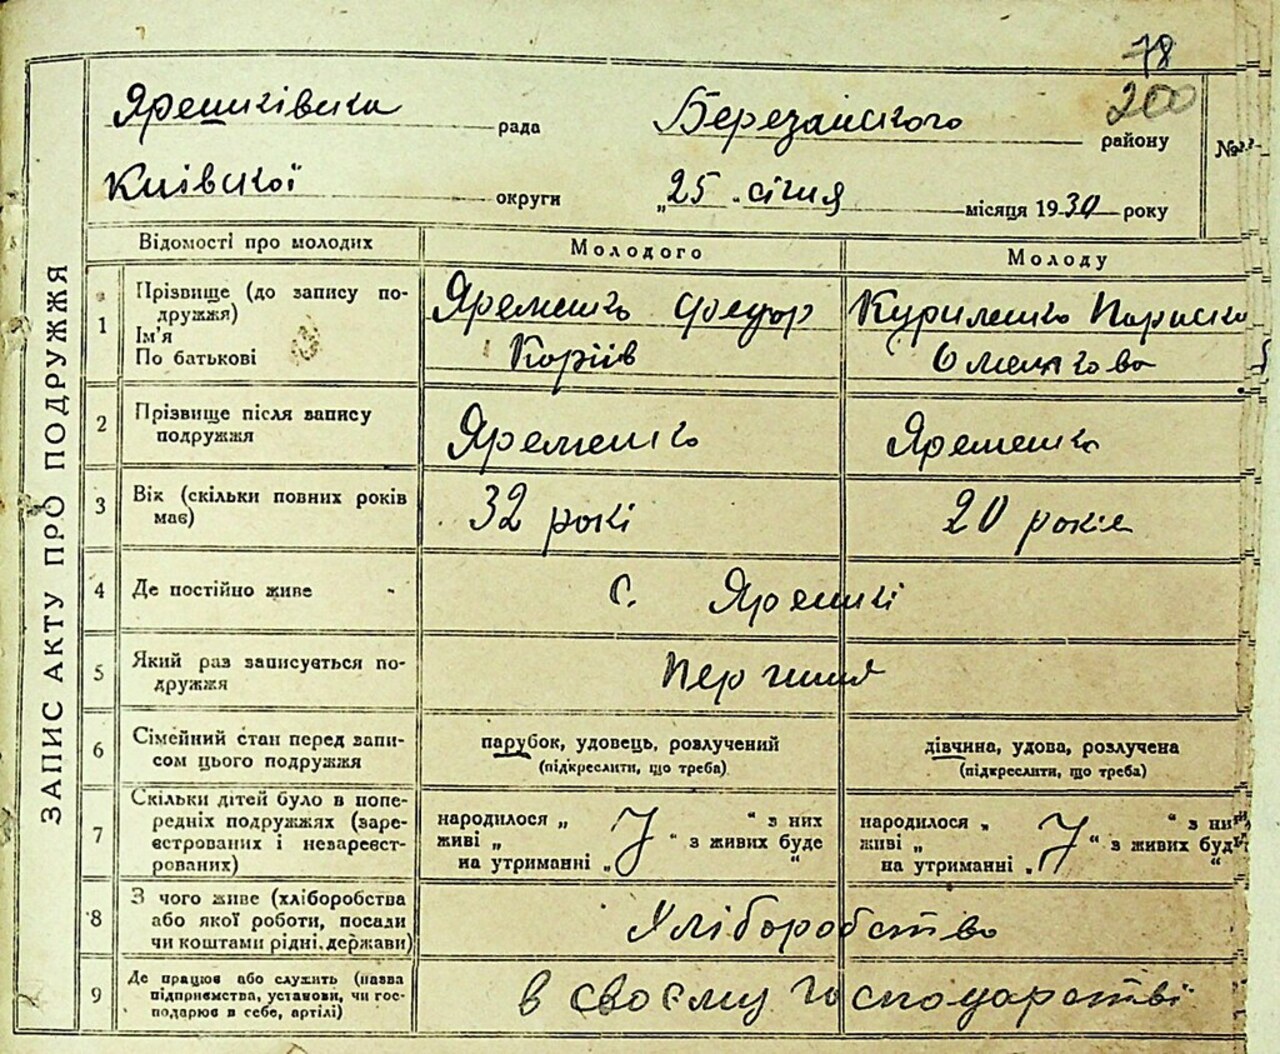 78
200
Ярешківска рада Березанского району №
Київскої округи „25 „ січня місяця 1930 року
ЗАПИС АКТУ ПРО ПОДРУЖЖЯ
Відомості про молодих Молодого Молоду
1 Прізвище (до запису по-
дружжя)
Ім'я
По батькові
Яременко Федор
Корнів
Куриленко Параска
Омелкова
2 Прізвище після запису
подружжя
Яременко Яременко
3 Вік (скільки повних років
має)
32 рокі 20 років
4 Де постійно живе с. Ярешкі
5 Який раз записується по-
дружжя
первший
6 Сімейний стан перед запи-
сом цього подружжя
парубок, удовець, розлучений
(підкреслити, що треба)
дівчина, удова, розлучена
(підкреслити, що треба)
7 Скільки дітей було в попе-
редніх подружжях (заре-
єстрованих і незареєст-
рованих)
народилося „ “ з них
живі „ “ з живих буде
на утриманні „ “
народилося „ “ з них
живі „ “ з живих буде
на утриманні „ “
8 З чого живе (хліборобства
або якої роботи, посади
чи коштами рідні, держави)
Хліборобство
9 Де працює або служить (назва
підприємства, установи, чи гос-
подарює в себе, артілі)
в своєму господарстві